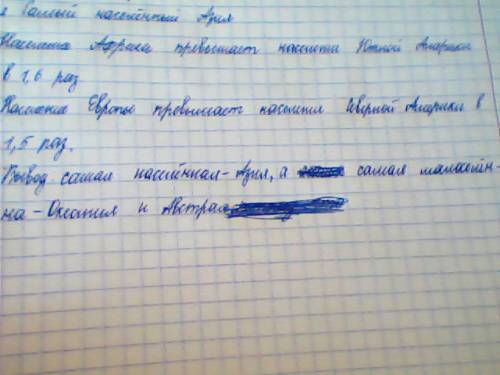 Самый населённый Азия
Население Африка превышает население Южной Америки
в 1,6 раз
Население Европы превышает население Северной Америки в
1,5 раз.
Вывод самая населённая - Азия, а самая малоселён-
на - Океания и Австрал